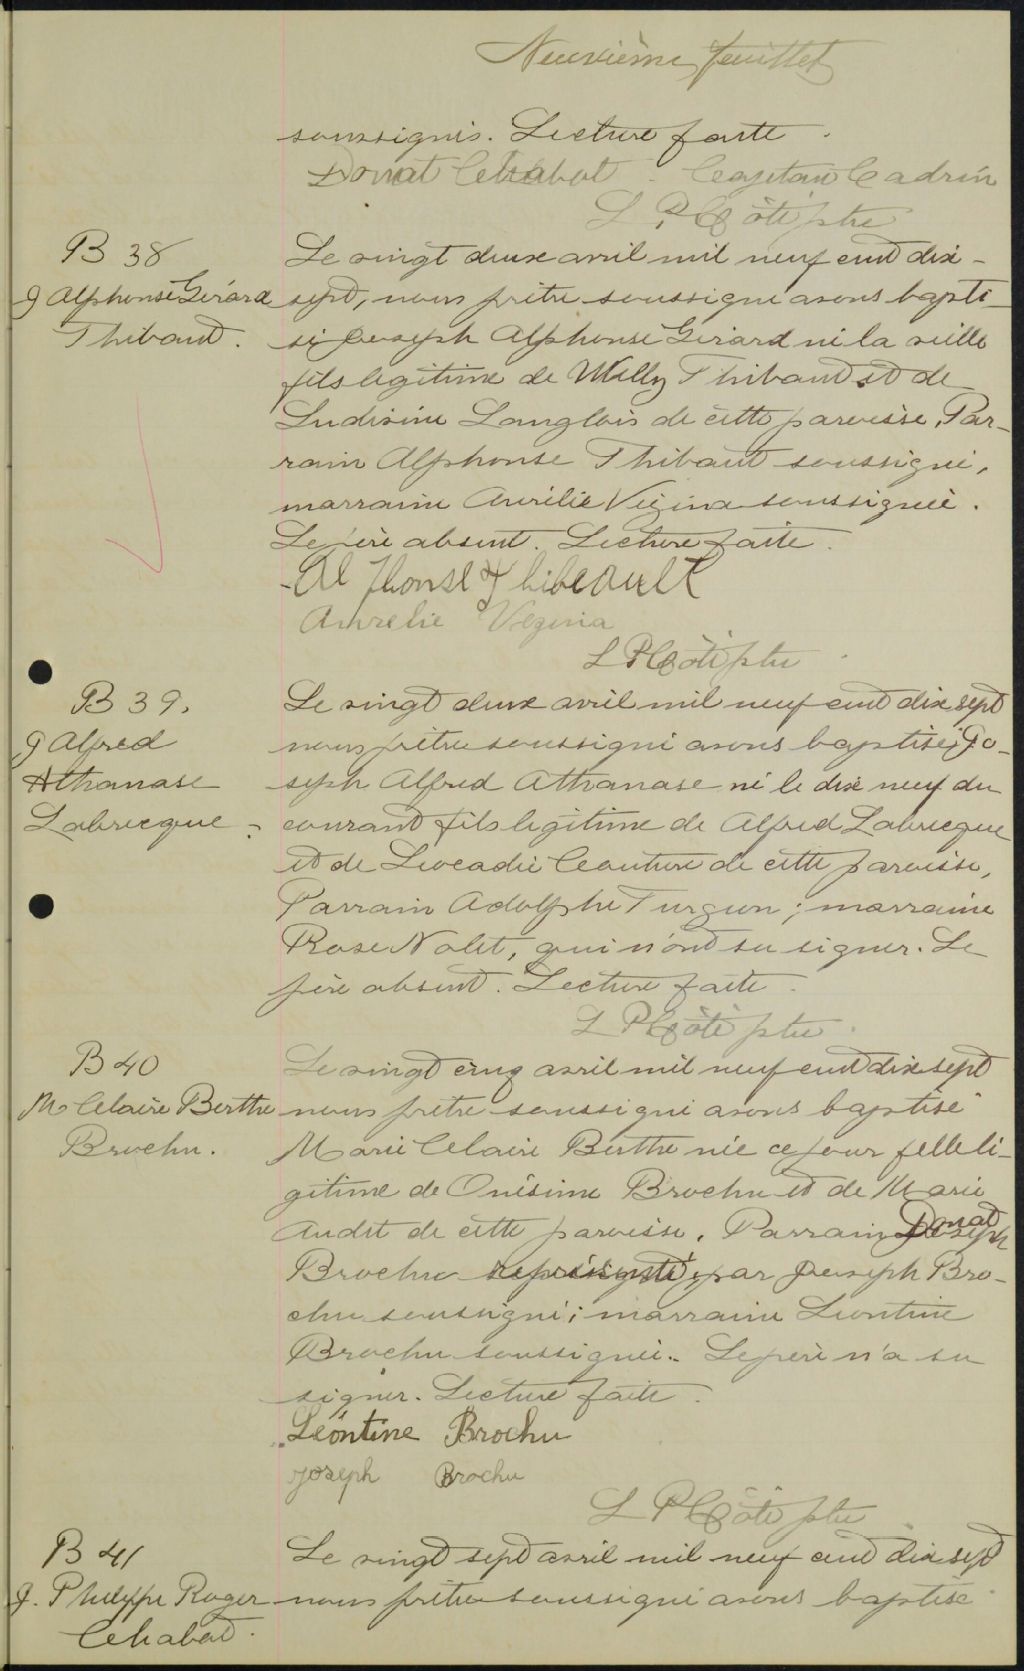 Neuvième feuillet
soussignés. Lecture faite.
Donat Chabot. Cajetan Cadrin
L P Côté ptre
B 38
J Alphonse Gérard
Thibault.
Le vingt deux avril mil neuf cent dix-
sept, nous prêtre soussigné avons bapti-
sé Joseph Alphonse Gérard né la veille
fils légitime de Willy Thibault et de
Ludivine Langlois de cette paroisse, Par-
rain Alphonse Thibault soussigné,
marraine Aurélie Vézina soussignée.
Le père absent. Lecture faite.
Alphonse Thibeault
Aurelie Vezina
L P Côté ptre
B 39.
J Alfred
Athanase
Labrecque.
Le vingt deux avril mil neuf cent dix sept
nous prêtre soussigné avons baptisé Jo-
seph Alfred Athanase né le dix neuf du
courant fils légitime de Alfred Labrecque
et de Léocadie Couture de cette paroisse,
Parrain Adolphe Turgeon; marraine
Rose Nolet, qui n'ont su signer. Le
père absent. Lecture faite.
L P Côté ptre.
B 40
M Claire Berthe
Brochu.
Le vingt cinq avril mil neuf cent dix sept
nous prêtre soussigné avons baptisé
Marie Claire Berthe née ce jour fille lé-
gitime de Onésime Brochu et de Marie
Audet de cette paroisse. Parrain Donat
Brochu représenté par Joseph Bro-
chu soussigné; marraine Léontine
Brochu soussignée. Le père n'a su
signer. Lecture faite.
Léontine Brochu
Joseph Brochu
L P Côté ptre
B 41
J. Philippe Roger
Chabot.
Le vingt sept avril mil neuf cent dix sept
nous prêtre soussigné avons baptisé